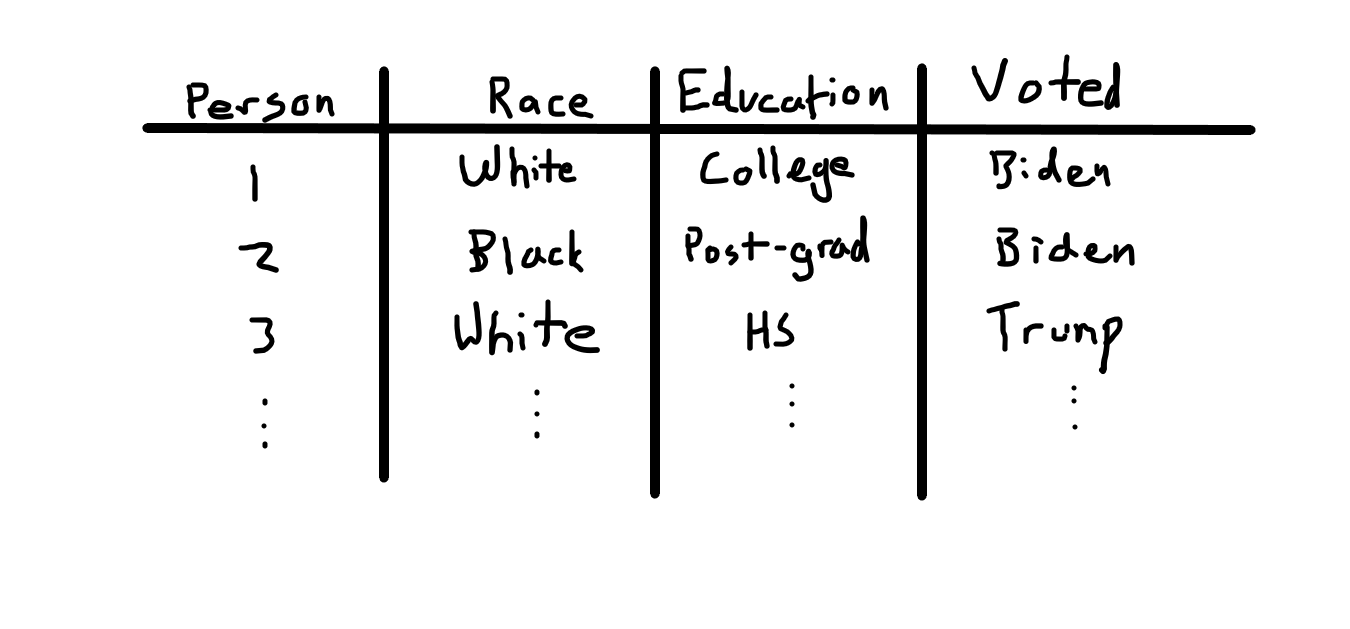 Person Race Education Voted
1 White College Biden
2 Black Post-grad Biden
3 White HS Trump
⋮ ⋮ ⋮ ⋮